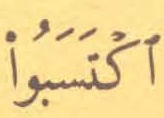 ٱكْتَسَبُواْ